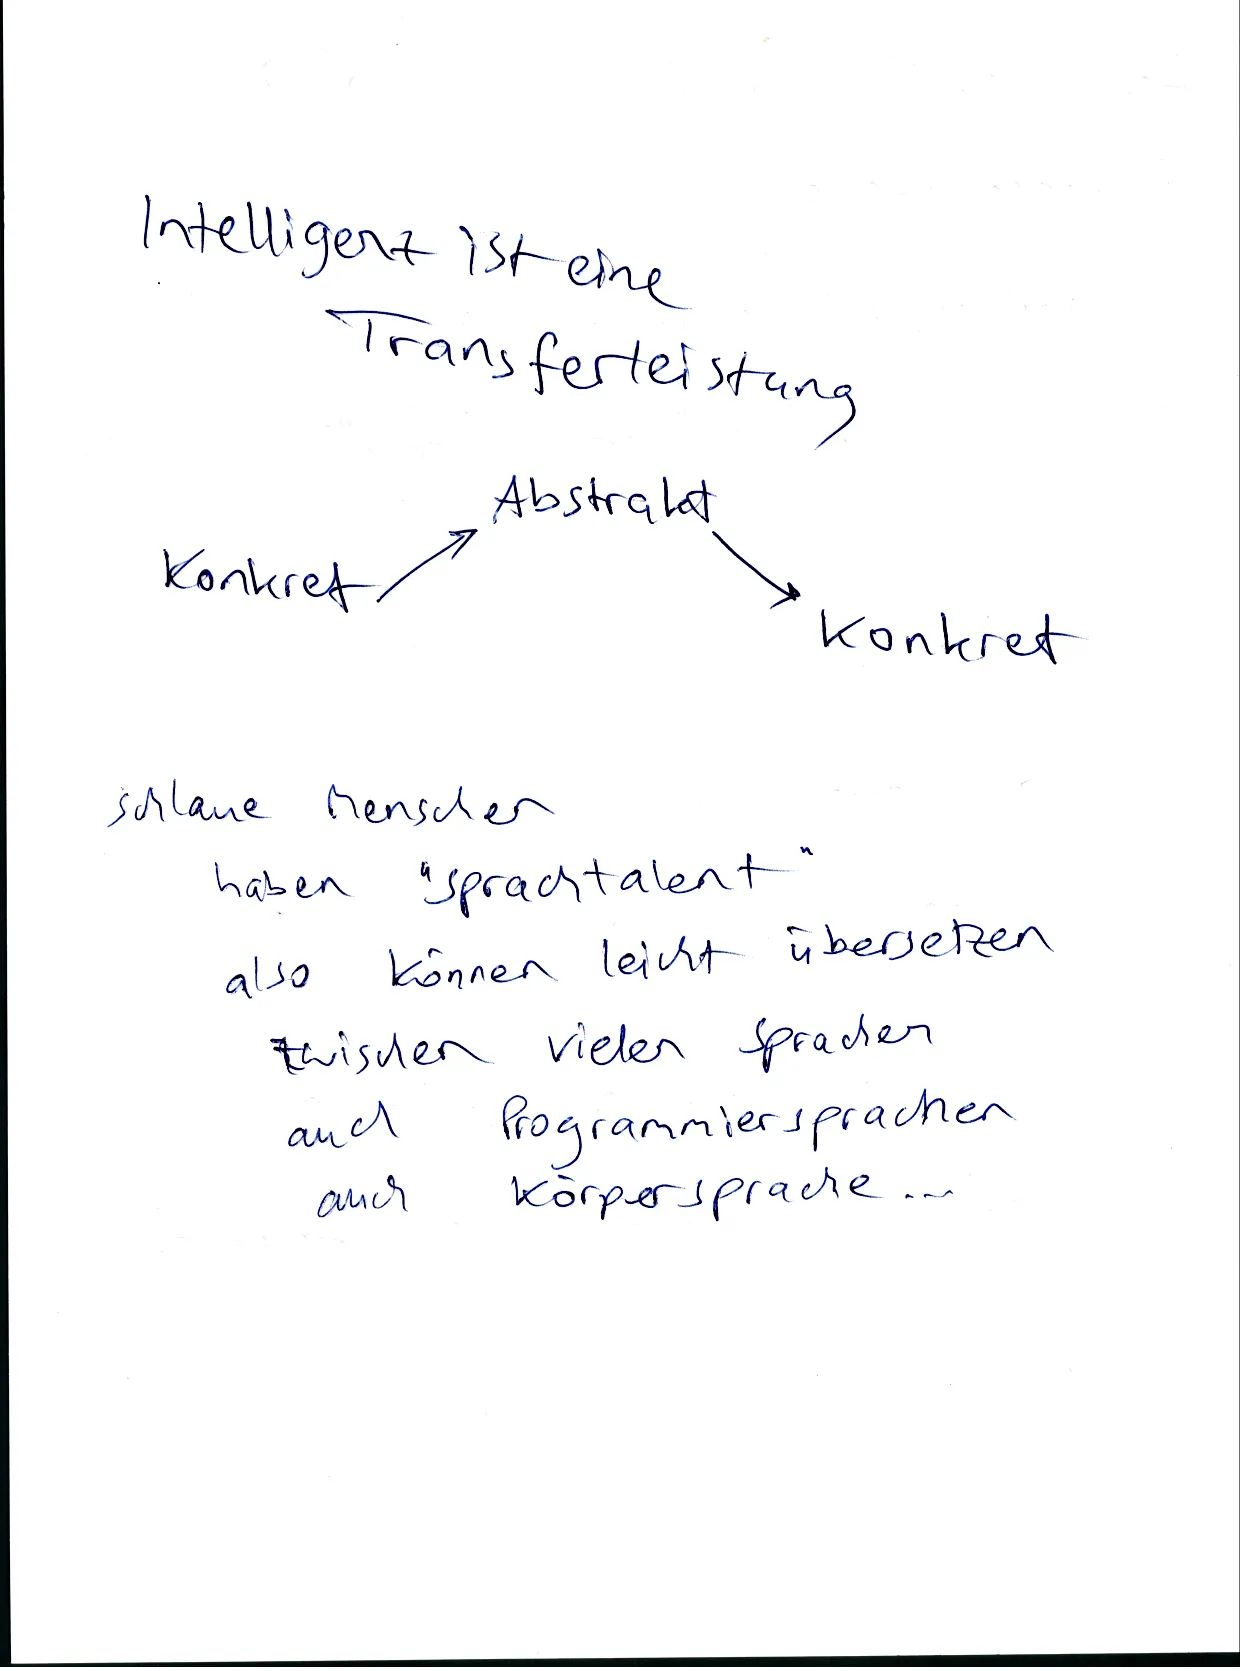 Intelligenz ist eine
Transferleistung
Abstrakt
Konkret
Konkret
schlaue Menschen
haben "sprachtalent"
also können leicht übersetzen
zwischen vielen Sprachen
auch Programmiersprachen
auch Körpersprache ...